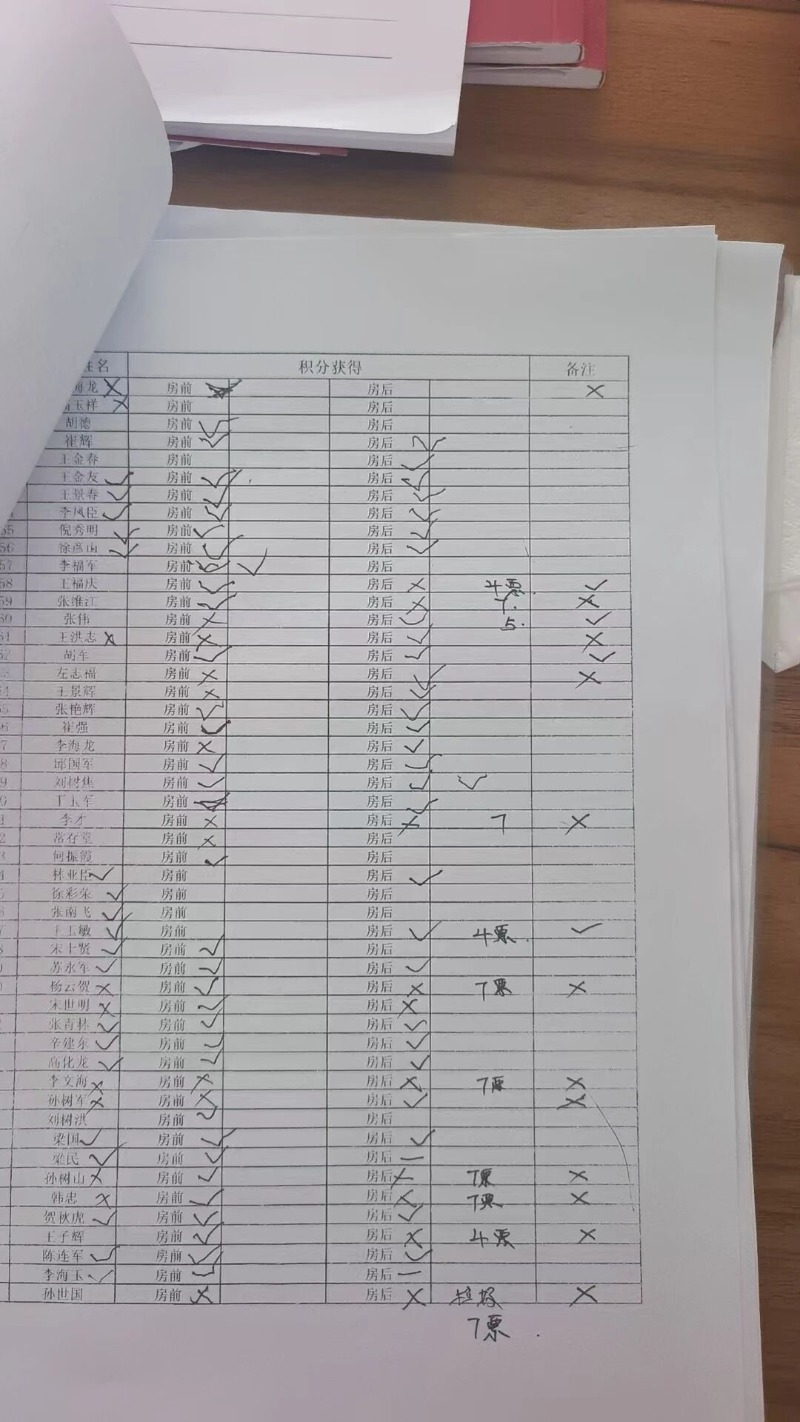 名 积分获得 备注
海龙 × 房前 房后 ×
玉祥 × 房前 房后
胡德 房前 ✓ 房后
崔辉 房前 ✓ 房后 ✓
王金春 房前 房后 ✓
王金友 ✓ 房前 ✓ 房后 ✓
王景春 ✓ 房前 ✓ 房后 ✓
李凤臣 ✓ 房前 ✓ 房后 ✓
55 倪秀明 ✓ 房前 ✓ 房后 ✓
56 徐彦 ✓ 房前 ✓ 房后 ✓
57 李福军 房前 ✓ 房后
58 王福庆 房前 ✓ 房后 × 4票 ✓
59 张维江 房前 ✓ 房后 × 7. ×
60 张伟 房前 × 房后 ✓ 5. ✓
61 王洪志 × 房前 × 房后 ✓ ×
62 胡军 房前 ✓ 房后 ✓ ✓
左志福 房前 × 房后 ✓ ×
王景辉 房前 × 房后 ✓
张艳辉 房前 ✓ 房后 ✓
崔强 房前 ✓ 房后 ✓
李海龙 房前 × 房后 ✓
邱国军 房前 ✓ 房后 ✓
刘树焦 房前 ✓ 房后 ✓ ✓
丁玉军 房前 房后 ✓
李才 房前 × 房后 × 7 ×
常存堂 房前 × 房后
何振霞 房前 ✓ 房后
林亚臣 ✓ 房前 房后 ✓
徐彩荣 ✓ 房前 房后
张南飞 ✓ 房前 房后
王玉敏 ✓ 房前 房后 ✓ 4票. ✓
宋士贤 ✓ 房前 ✓ 房后
苏永军 ✓ 房前 ✓ 房后 ✓
杨云贺 × 房前 ✓ 房后 × 7票 ×
宋世明 × 房前 ✓ 房后 ×
张青林 ✓ 房前 ✓ 房后 ✓
辛建东 ✓ 房前 ✓ 房后 ✓
高化龙 ✓ 房前 ✓ 房后 ✓
李文海 × 房前 × 房后 × 7票 ×
孙树军 × 房前 × 房后 ✓ ×
刘树洪 房前 ✓ 房后
梁国 ✓ 房前 ✓ 房后 ✓
梁民 ✓ 房前 ✓ 房后 一
孙树山 × 房前 ✓ 房后 × 7票 ×
韩忠 × 房前 ✓ 房后 × 7票 ×
贺秋虎 ✓ 房前 ✓ 房后 ✓
王子辉 房前 ✓ 房后 × 4票 ×
陈连军 ✓ 房前 ✓ 房后 ✓
李海玉 ✓ 房前 ✓ 房后 一
孙世国 房前 × 房后 × 垃圾 ×
7票.